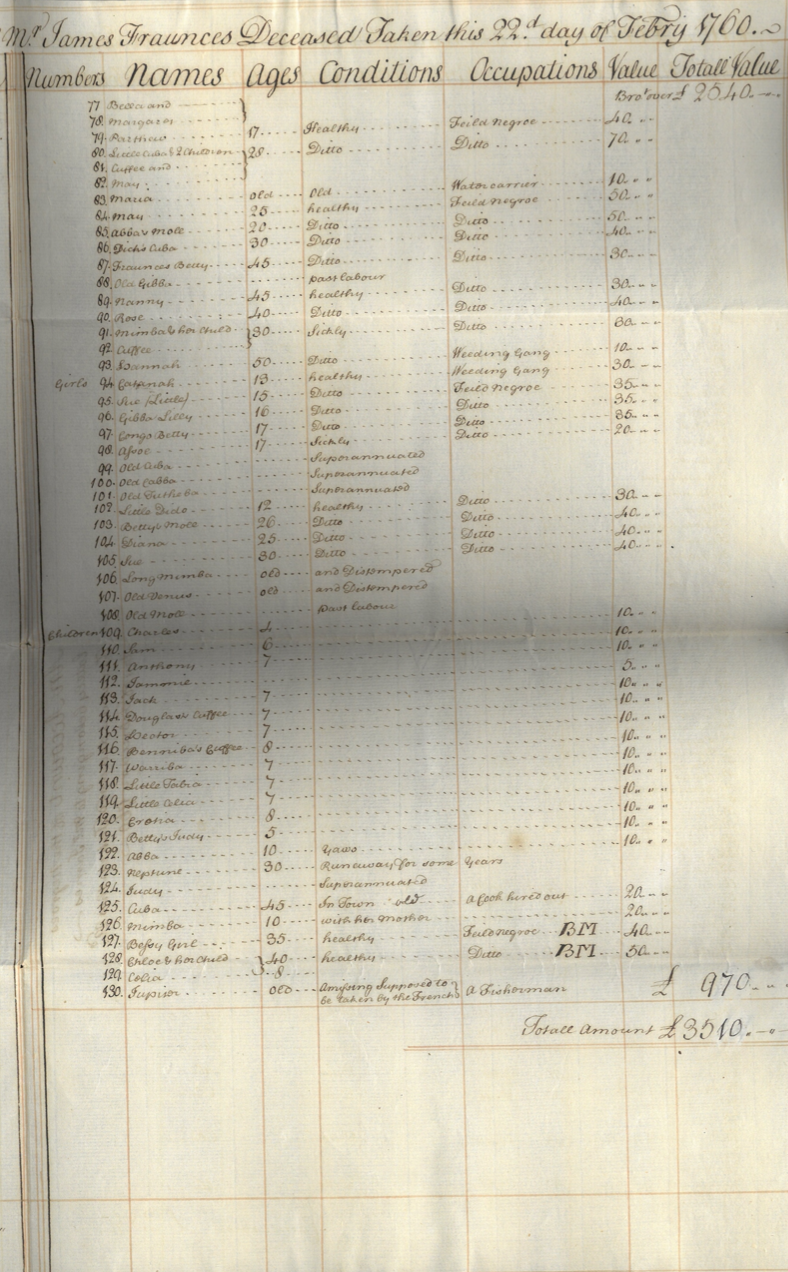 Mr James Fraunces Deceased Taken this 22.d day of Febry 1760.
Numbers Names Ages Conditions Occupations Value Totall Value
Bro't over £ 2540
77 Becca and
78. Margaret
79. Parthew 17 Healthy Feild Negroe 40
80. Little Cuba & 2 Children 28 Ditto Ditto 70
81. Cuffee and
82. May
83. Maria old Old Water carrier 10
84. May 25 healthy Feild Negroe 50
85. Abba's Moll 20 Ditto Ditto 50
86. Dick's Cuba 30 Ditto Ditto 40
87. Fraunces Betty 45 Ditto Ditto 30
88. Old Gibba past labour
89. Nanny 45 healthy Ditto 30
90. Rose 40 Ditto Ditto 40
91. Mimba & her Child 30 Sickly Ditto 30
92. Cuffee
93. Hannah 50 Ditto Weeding Gang 10
Girls 94. Catanah 13 healthy Weeding Gang 30
95. Sue (Little) 15 Ditto Feild Negroe 35
96. Gibba Lilly 16 Ditto Ditto 35
97. Congo Betty 17 Ditto Ditto 35
98. 17 Sickly Ditto 20
99. Old Cuba Superannuated
100. Old Cabba Superannuated
101. Old Superannuated
102. Little Dido 12 healthy Ditto 30
103. Betty's Moll 26 Ditto Ditto 40
104. Diana 25 Ditto Ditto 40
105. Sue 30 Ditto Ditto 40
106. Long Mimba old and Distempered
107. Old Venus old and Distempered
108. Old Moll past labour
Children 109. Charles 4 10
110. Sam 6 10
111. Anthony 7 10
112. Jammie 5
113. Jack 7 10
114. Douglas's Cuffee 7 10
115. Hector 7 10
116. Benniba's Cuffee 8 10
117. Warriba 7 10
118. Little Tabia 7 10
119. Little Celia 7 10
120. 8 10
121. Betty's Judy 5 10
122. Abba 10 Yaws 10
123. Neptune 30 Runaway for some Years
124. Judy Superannuated
125. Cuba 45 In Town old A Cook hired out 20
126. Mimba 10 with her Mother 20
127. Bessy Girl 35 healthy Feild Negroe BM 40
128. Chloe & her Child 40 healthy Ditto BM 50
129. Celia 8
130. Jupiter old Amissing Supposed to be taken by the French A Fisherman £ 970
Totall Amount £ 3510